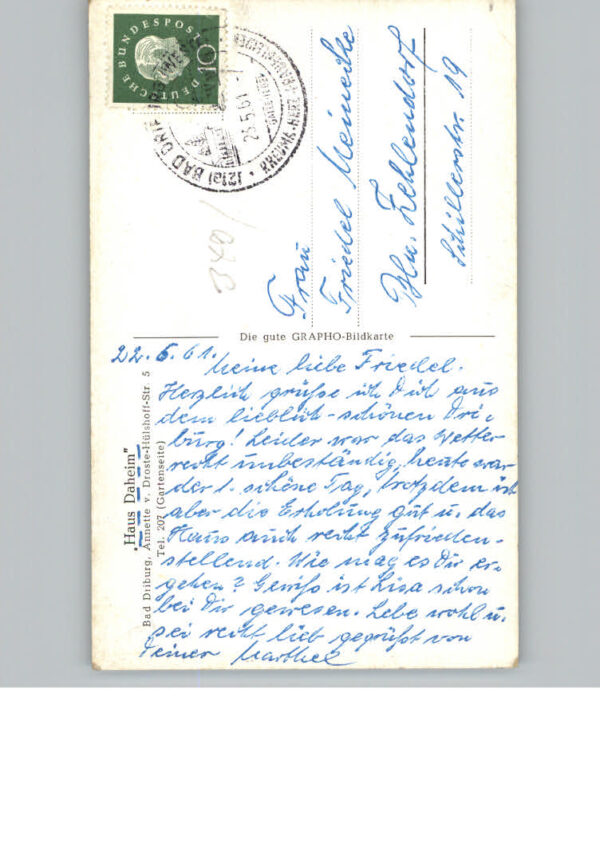 DEUTSCHE BUNDESPOST
10
(21a) BAD
24.5.61
340/
Frau
Friedel Meinecke
Bln. Zehlendorf
Schillerstr. 19
Die gute GRAPHO-Bildkarte
"Haus Daheim"
Bad Driburg, Annette v. Droste-Hülshoff-Str. 5
Tel. 207 (Gartenseite)
22.5.61.
Meine liebe Friedel.
Herzlich grüße ich Dich aus
dem lieblich-schönen Dri-
burg! Leider war das Wetter
recht unbeständig, heute war
der 1. schöne Tag, trotzdem ist
aber die Erholung gut u. das
Haus auch recht zufrieden-
stellend. Wie mag es Dir er-
gehen? Gewiß ist Lisa schon
bei Dir gewesen. Lebe wohl u.
sei recht lieb gegrüßt von
Deiner Marthel